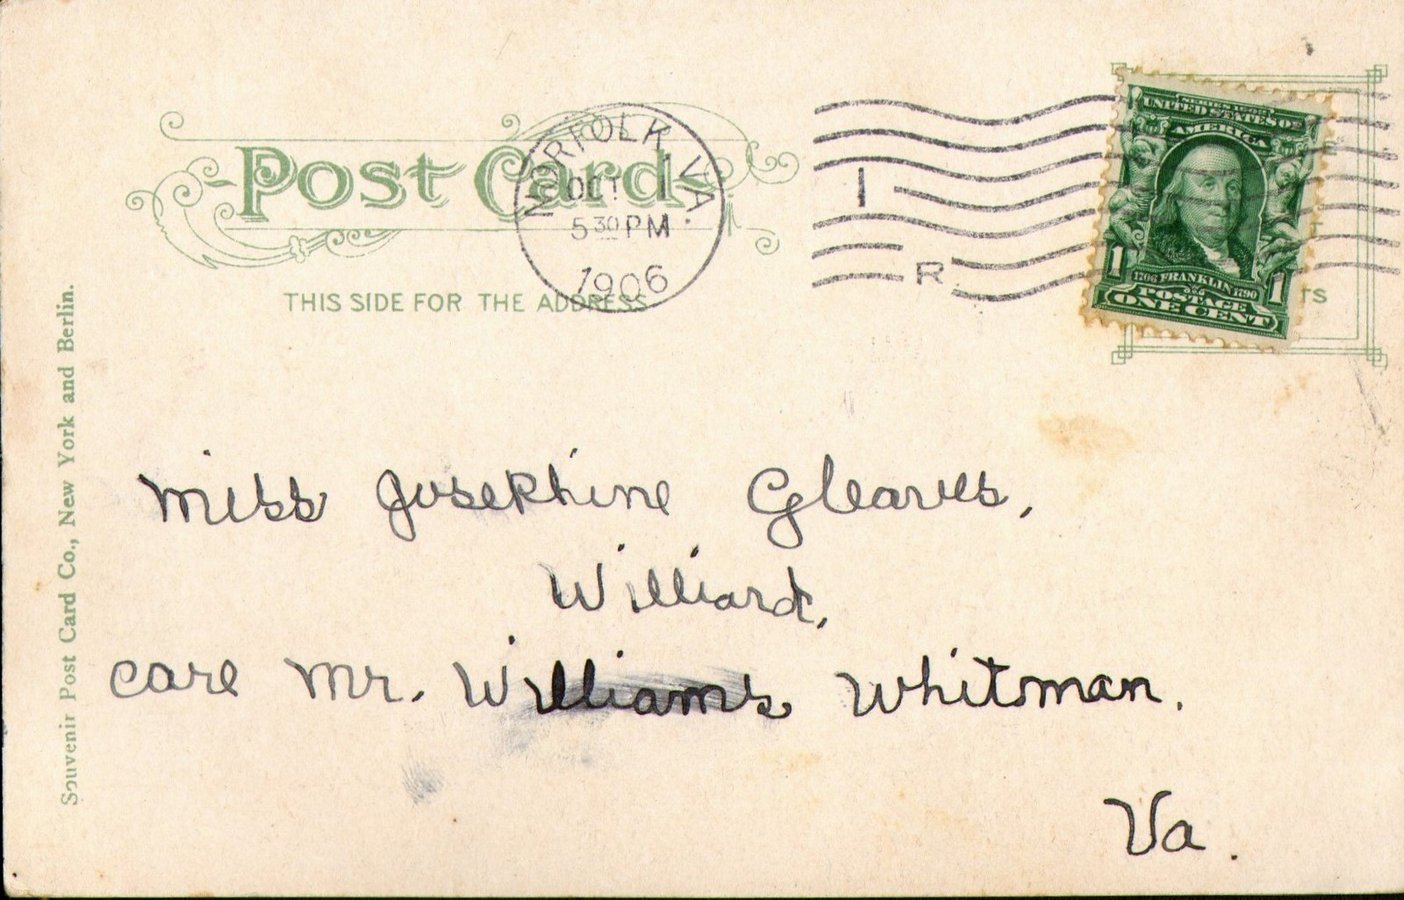 Post Card
THIS SIDE FOR THE ADDRESS
NORFOLK VA.
OCT 1
5 30 PM
1906
1
R
SERIES 1902
UNITED STATES OF
AMERICA
1706 FRANKLIN 1790
1 POSTAGE 1
ONE CENT
TS
Miss Josephine Gleaves,
Williard,
care Mr. Williams Whitman.
Va.
Souvenir Post Card Co., New York and Berlin.